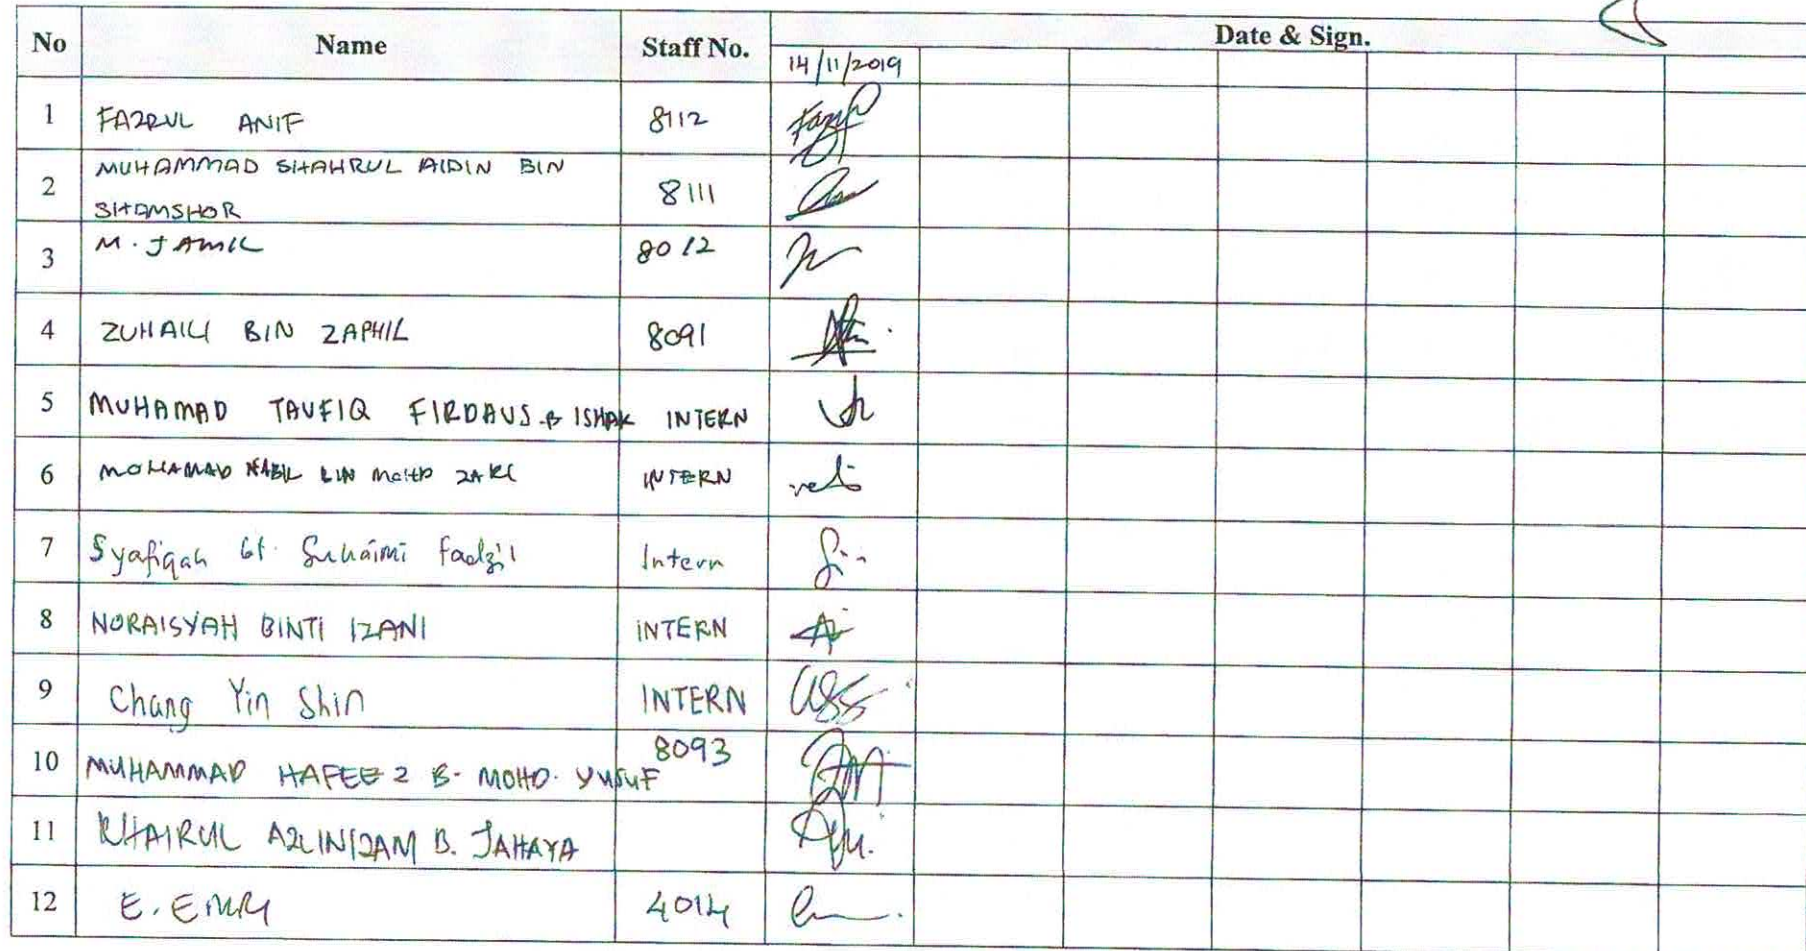 No Name Staff No. Date & Sign.
14/11/2019
1 FAZRUL ANIF 8112
2 MUHAMMAD SHAHRUL AIDIN BIN
SHAMSHOR 8111
3 M. JAMIL 8012
4 ZUHAILI BIN ZAPHIL 8091
5 MUHAMAD TAUFIQ FIRDAUS B ISHAK INTERN
6 MOHAMAD NABIL BIN MOHD ZAKI INTERN
7 Syafiqah bt. Suhaimi Fadzil Intern
8 NORAISYAH BINTI IZANI INTERN
9 Chang Yin Shin INTERN
10 MUHAMMAD HAFEEZ B. MOHD. YUSUF 8093
11 KHAIRUL AZLINIZAM B. JAHAYA
12 E. 4014